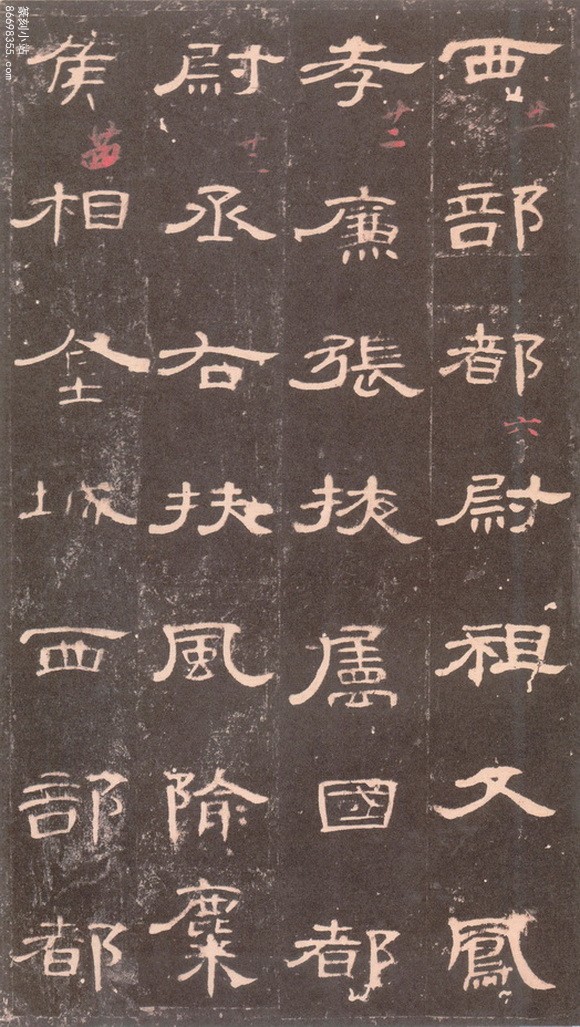 西部都尉祖父鳳
孝廉張掖屬國都
尉丞右扶風隃麋
侯相金城西部都
廿一
六
廿二
廿三
篆刻小站
86698355.com